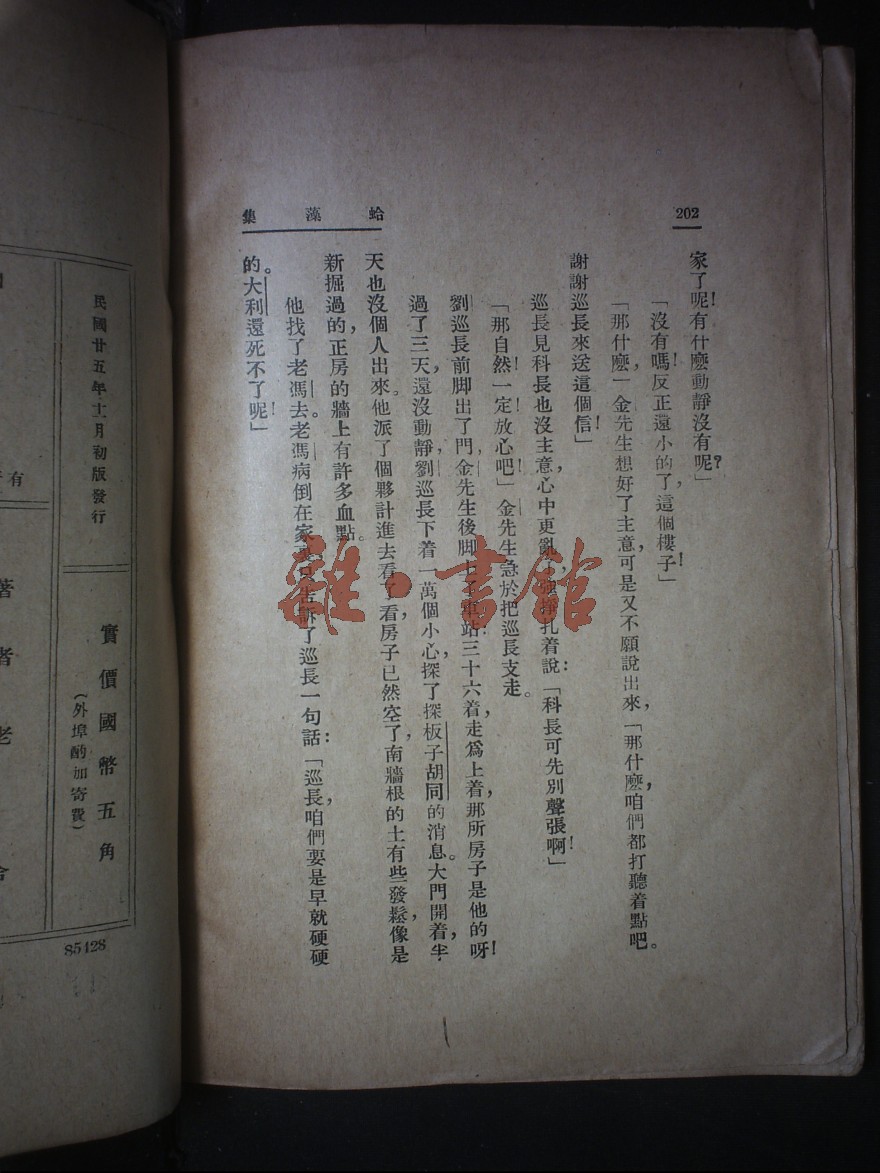 202
蛤藻集
家了呢！有什麼動靜沒有呢？」
「沒有嗎！反正還小的了，這個樓子！」
「那什麼，」金先生想好了主意，可是又不願說出來，「那什麼，咱們都打聽着點吧。
謝謝巡長來送這個信！」
巡長見科長也沒主意，心中更亂，強掙扎着說：「科長可先別聲張啊！」
「那自然！一定！放心吧！」金先生急於把巡長支走。
劉巡長前脚出了門，金先生後脚上了車站。三十六着，走爲上着，那所房子是他的呀！
過了三天，還沒動靜，劉巡長下着一萬個小心，探了探板子胡同的消息。大門開着，半
天也沒個人出來。他派了個夥計進去看了看，房子已然空了，南牆根的土有些發鬆，像是
新掘過的，正房的牆上有許多血點。
他找了老馮去。老馮病倒在家
告訴了巡長一句話：「巡長，咱們要是早就硬硬
的。大利還死不了呢！」
雜·書館
民國廿五年十一月初版發行
實價國幣五角
（外埠酌加寄費）
著者 老 舍
有
85428